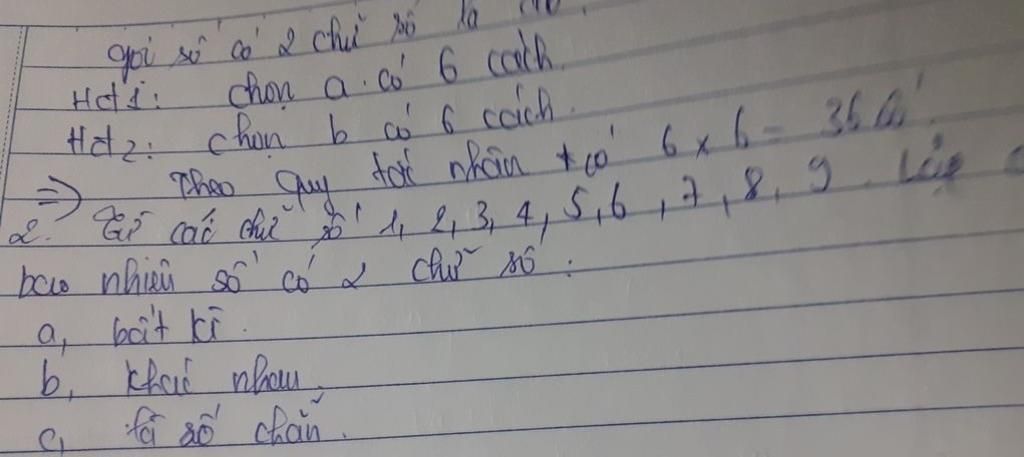 gọi số có 2 chữ số là
Hđ1: chọn a có 6 cách.
Hđ2: chọn b có 6 cách.
=> Theo quy tắc nhân có 6 x 6 = 36 số
2. Từ các chữ số 1, 2, 3, 4, 5, 6, 7, 8, 9. Lập
bao nhiêu số có 2 chữ số:
a, bất kì.
b, khác nhau.
c, là số chẵn.